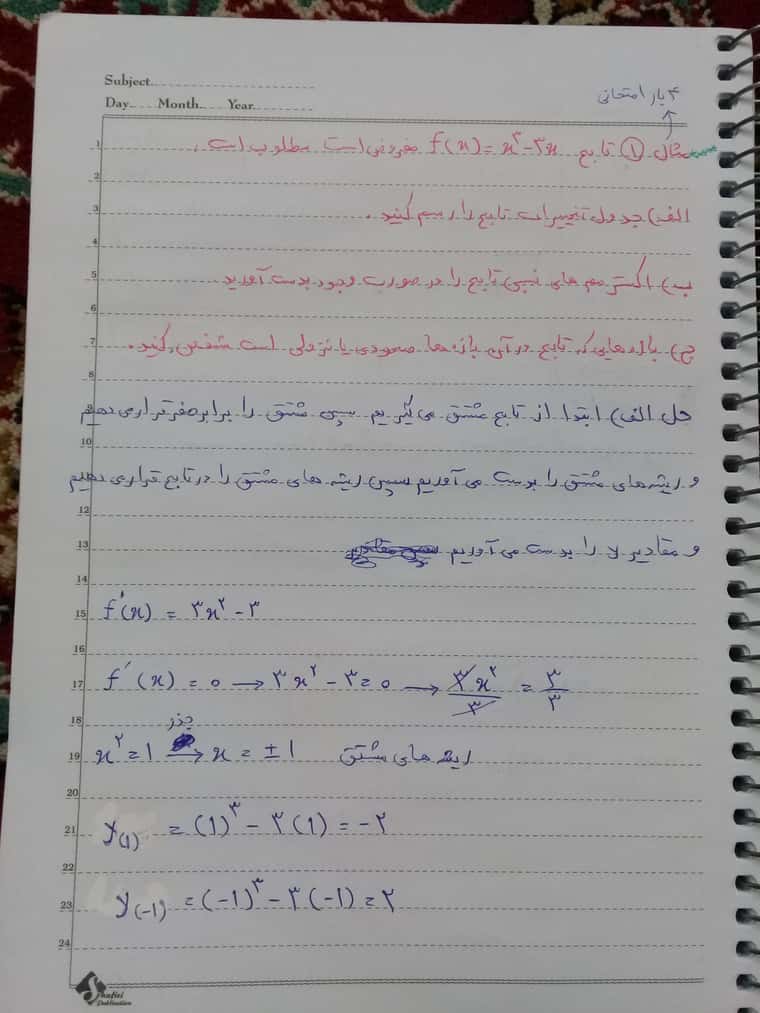 ۳ بار امتحانی
Subject
Day Month Year
1 مثال ① تابع f(x) = x³ - ۳x مفروض است مطلوب است .
2
3 الف) جدول تغییرات تابع را رسم کنید .
4
5 ب) اکسترمم های نسبی تابع را در صورت وجود بدست آورید
6
7 ج) بازه هایی که تابع در آن بازه ها صعودی یا نزولی است مشخص کنید .
8
9 حل الف) ابتدا از تابع مشتق می گیریم سپس مشتق را برابر صفر قرار می دهیم
10
11 و ریشه های مشتق را بدست می آوریم سپس ریشه های مشتق را در تابع قرار می دهیم
12
13 و مقادیر y را بدست می آوریم
14
15 f'(x) = ۳x² - ۳
16
17 f'(x) = ۰ → ۳x² - ۳ = ۰ → ۳x²/۳ = ۳/۳
18 جذر
19 x² = ۱ → x = ±۱ ریشه های مشتق
20
21 y(۱) = (۱)³ - ۳(۱) = -۲
22
23 y(-۱) = (-۱)³ - ۳(-۱) = ۲
24
Shafiei
Publication